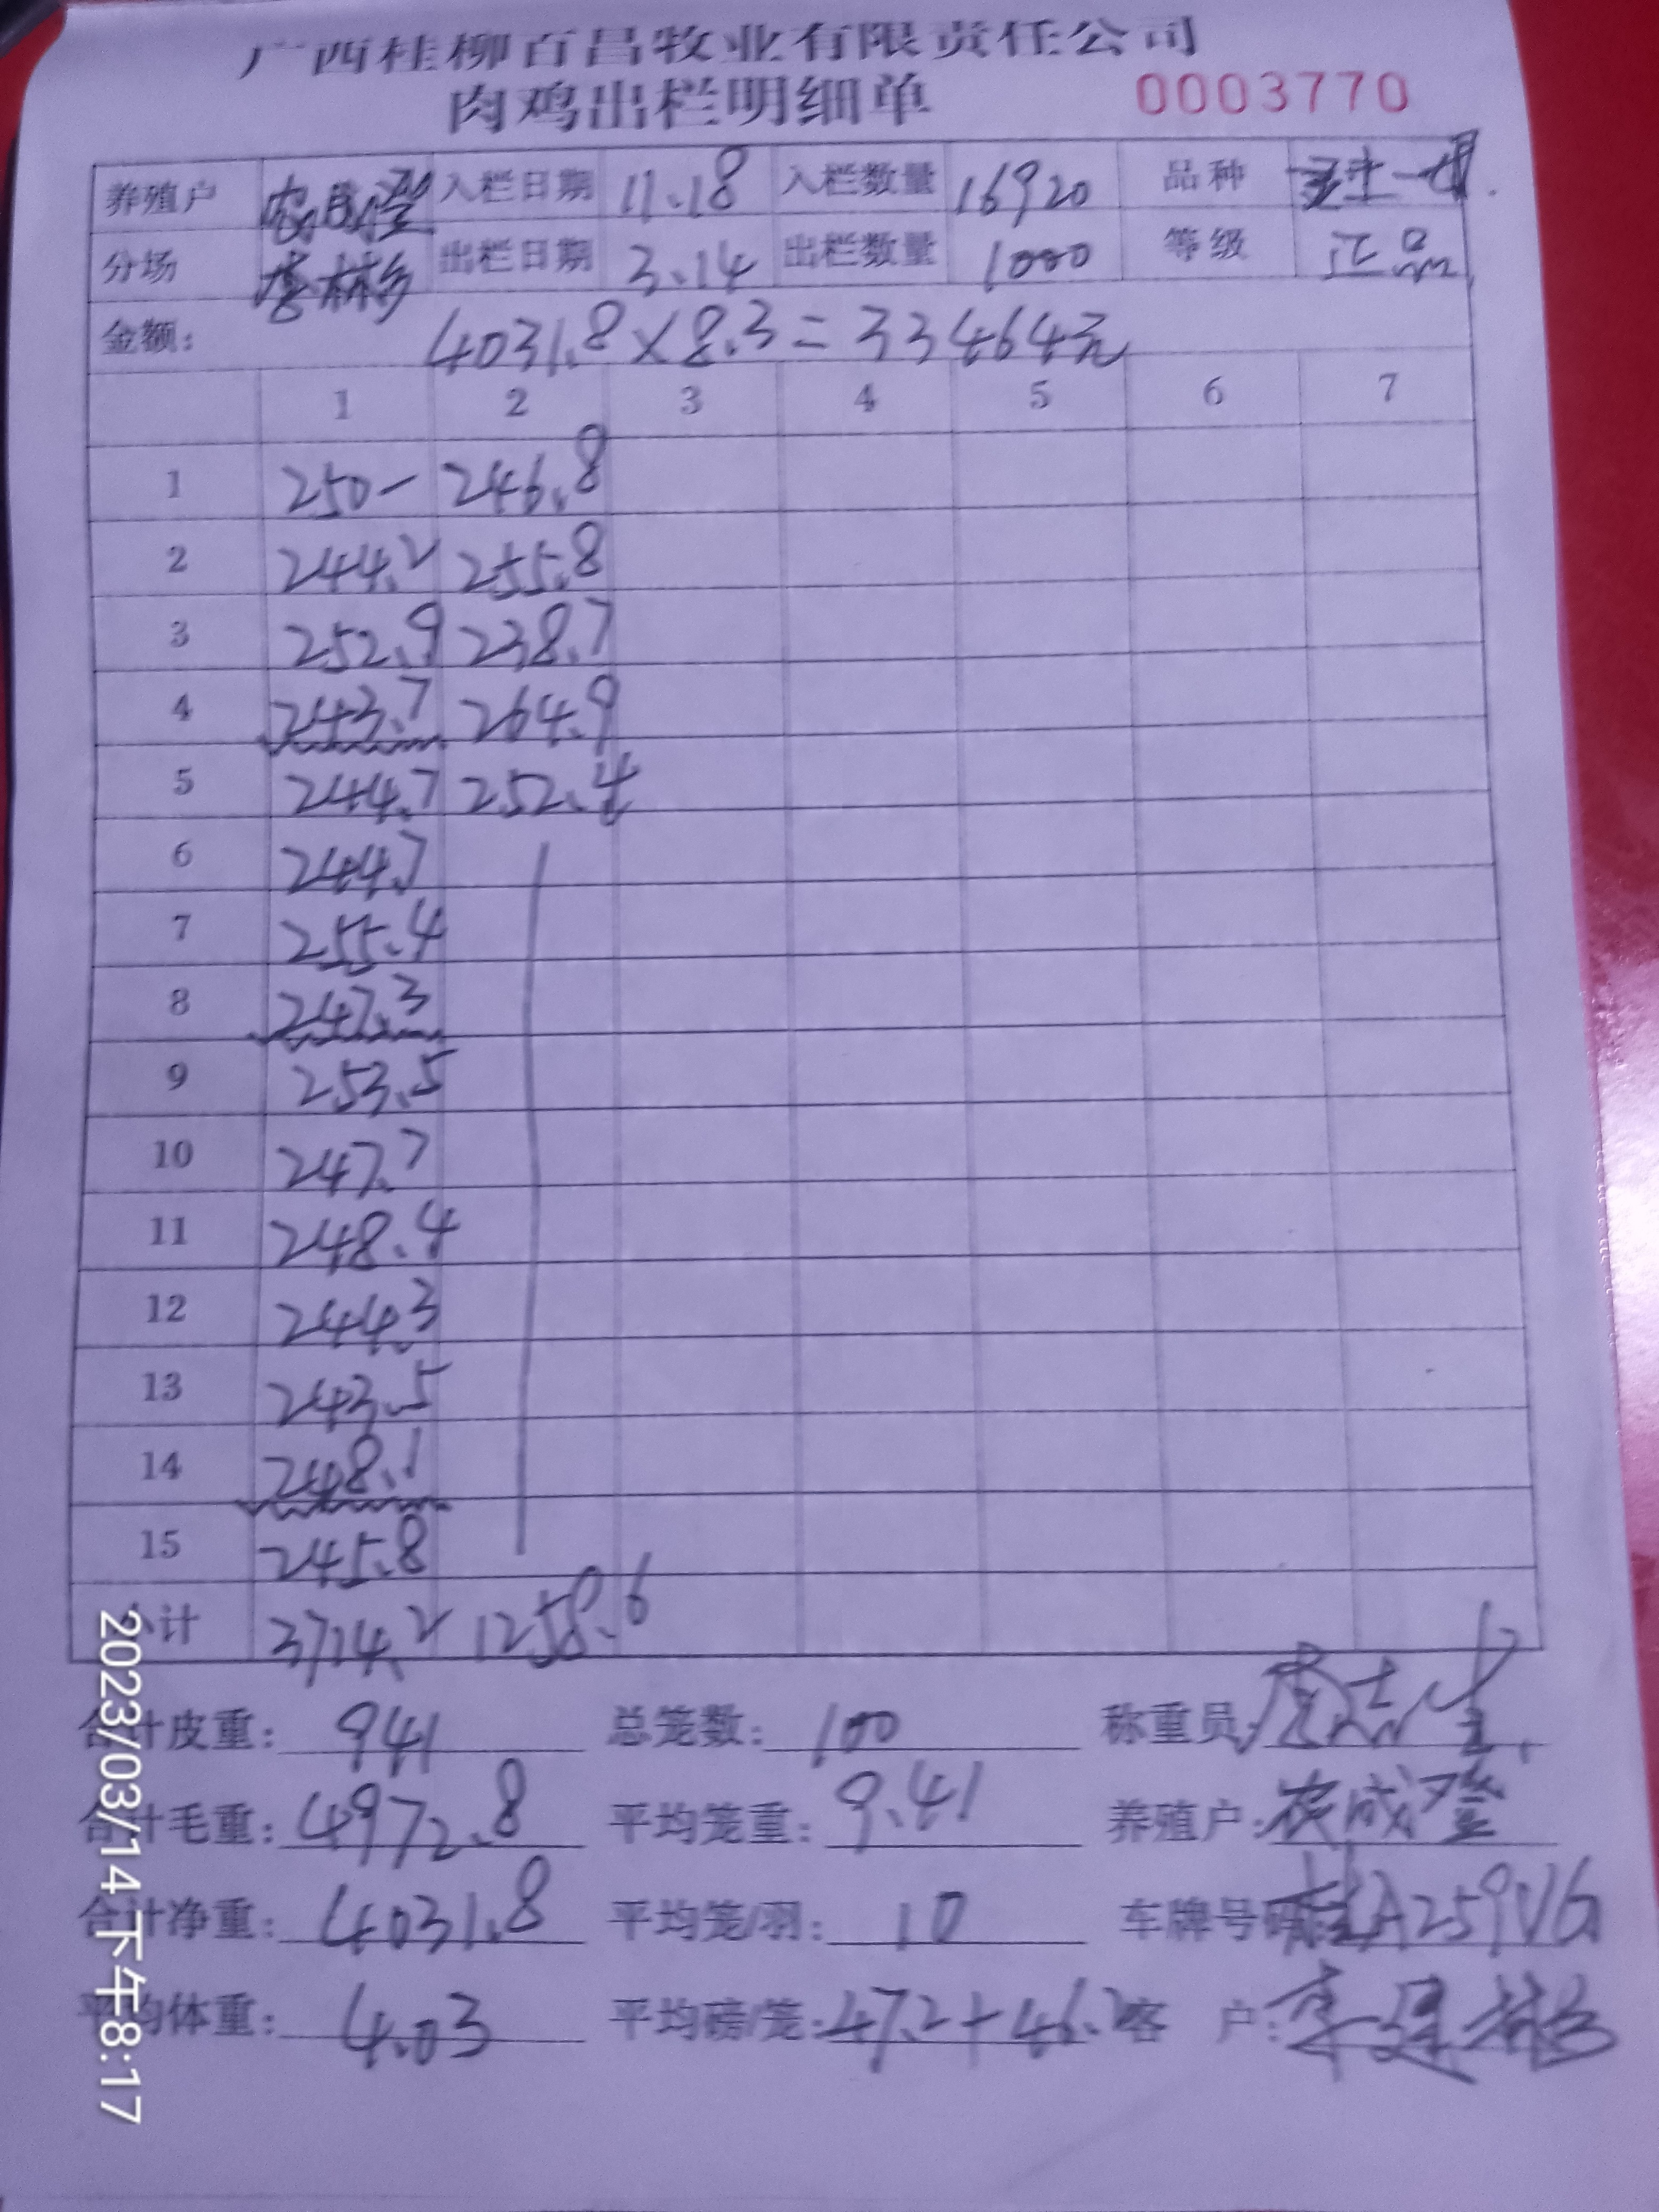 广西桂柳百昌牧业有限责任公司
肉鸡出栏明细单 0003770
养殖户 入栏日期 11.18 入栏数量 16920 品种
分场 出栏日期 3.14 出栏数量 1000 等级 正品
金额: 4031.8×8.3=33464元
1 2 3 4 5 6 7
1 250- 246.8
2 244.2 255.8
3 252.9 238.7
4 243.7 264.9
5 244.7 252.4
6 244.7
7 255.4
8 247.3
9 253.5
10 247.7
11 248.4
12 244.3
13 243.5
14 248.1
15 245.8
计 3714.2 1258.6
合计皮重: 941 总笼数: 100 称重员:
合计毛重: 4972.8 平均笼重: 9.41 养殖户: 农成登
合计净重: 4031.8 平均笼/羽: 10 车牌号码 桂A259VG
平均体重: 4.03 平均磅/笼: 47.2+46.2 客户:
2023/03/14 下午8:17